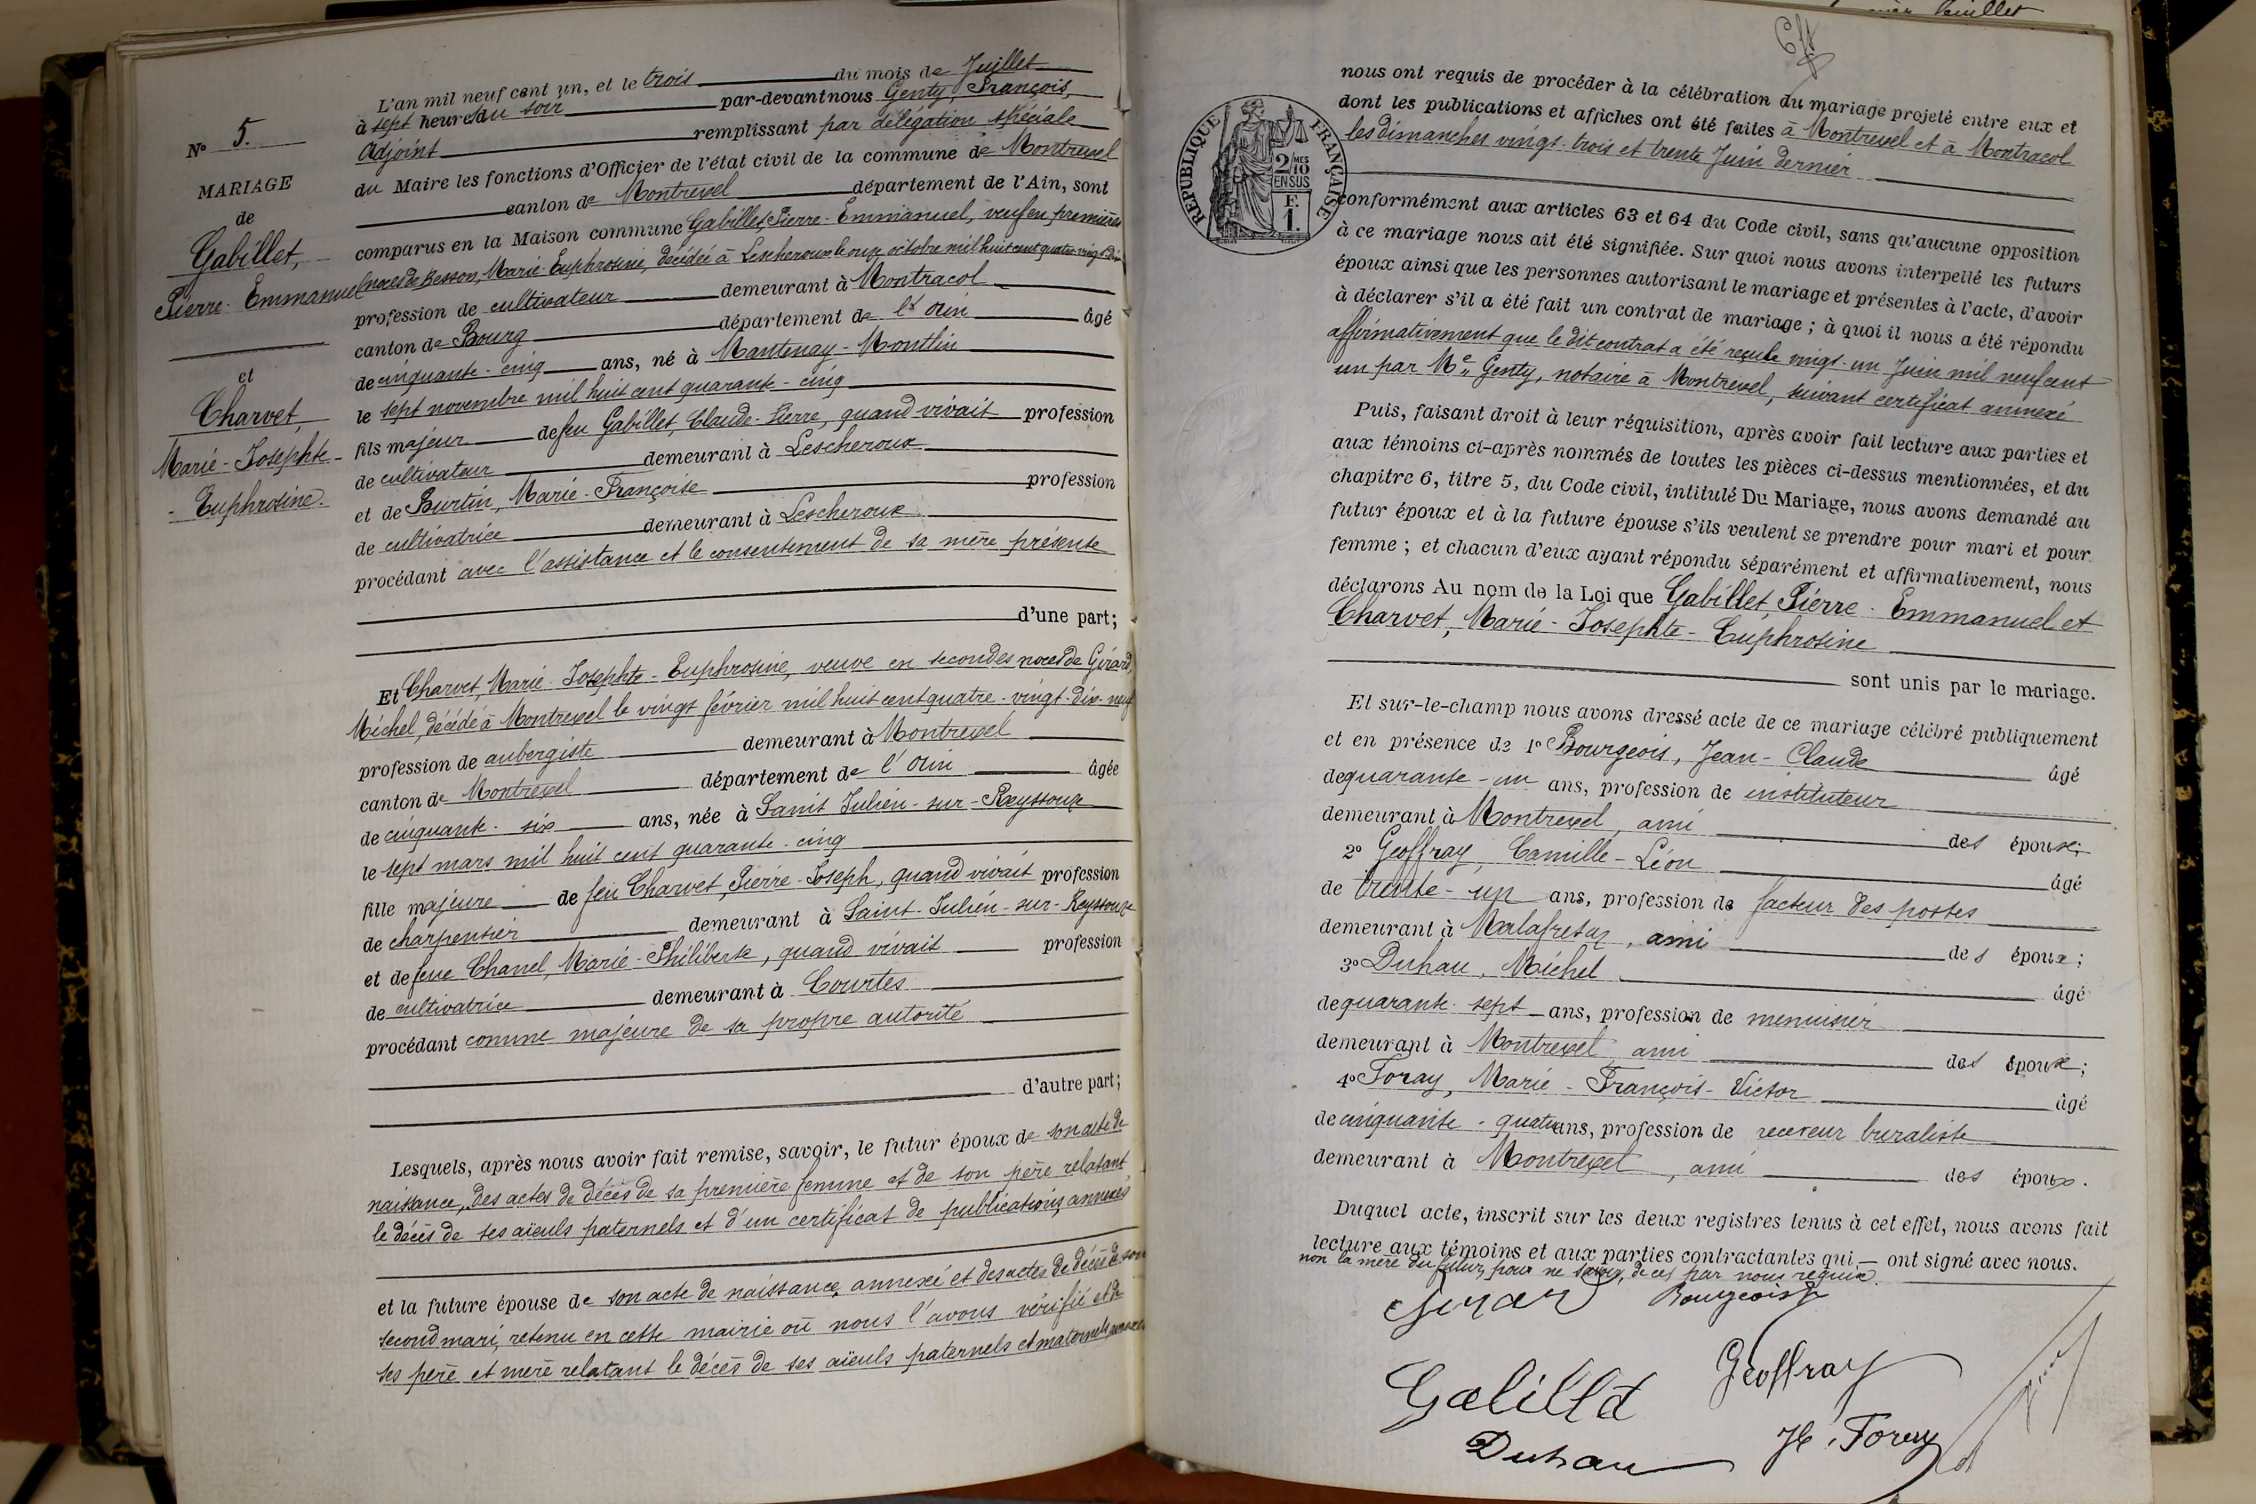 L'an mil neuf cent un, et le trois du mois de Juillet
à sept heures du soir par-devant nous Genty, François,
Adjoint remplissant par délégation spéciale
du Maire les fonctions d'Officier de l'état civil de la commune de Montrevel
canton de Montrevel département de l'Ain, sont
comparus en la Maison commune Gabillet, Pierre-Emmanuel, veuf en premières
noces de Besson, Marie-Euphrosine, décédée à Lescheroux le onze octobre mil huit cent quatre-vingt-dix
profession de cultivateur demeurant à Montracol
canton de Bourg département de l'Ain âgé
de cinquante-cinq ans, né à Mantenay-Montlin
le sept novembre mil huit cent quarante-cinq
fils majeur de feu Gabillet, Claude-Pierre, quand vivait profession
de cultivateur demeurant à Lescheroux
et de Burtin, Marie-Françoise profession
de cultivatrice demeurant à Lescheroux
procédant avec l'assistance et le consentement de sa mère présente
d'une part;
Et Charvet, Marie-Josephte-Euphrosine, veuve en secondes noces de Girard,
Michel, décédé à Montrevel le vingt février mil huit cent quatre-vingt-dix-neuf
profession de aubergiste demeurant à Montrevel
canton de Montrevel département de l'Ain âgée
de cinquante-six ans, née à Saint Julien-sur-Reyssouze
le sept mars mil huit cent quarante-cinq
fille majeure de feu Charvet, Pierre-Joseph, quand vivait profession
de charpentier demeurant à Saint-Julien-sur-Reyssouze
et de feue Chanel, Marie-Philiberte, quand vivait profession
de cultivatrice demeurant à Courtes
procédant comme majeure de sa propre autorité
d'autre part;
Lesquels, après nous avoir fait remise, savoir, le futur époux de son acte de
naissance, des actes de décès de sa première femme et de son père relatant
le décès de ses aïeuls paternels et d'un certificat de publications, annexés
et la future épouse de son acte de naissance, annexé et des actes de décès de son
second mari, retenu en cette mairie où nous l'avons vérifié et de
ses père et mère relatant le décès de ses aïeuls paternels et maternels annexés
N° 5.
MARIAGE
de
Gabillet,
Pierre-Emmanuel
et
Charvet,
Marie-Josephte-
-Euphrosine.
Juillet
RÉPUBLIQUE FRANÇAISE
2 MES
10
EN SUS
F.
1.
nous ont requis de procéder à la célébration du mariage projeté entre eux et
dont les publications et affiches ont été faites à Montrevel et à Montracol
les dimanches vingt-trois et trente Juin dernier
conformément aux articles 63 et 64 du Code civil, sans qu'aucune opposition
à ce mariage nous ait été signifiée. Sur quoi nous avons interpellé les futurs
époux ainsi que les personnes autorisant le mariage et présentes à l'acte, d'avoir
à déclarer s'il a été fait un contrat de mariage; à quoi il nous a été répondu
affirmativement que le dit contrat a été reçu le vingt-un Juin mil neuf cent
un par Me Genty, notaire à Montrevel, suivant certificat annexé
Puis, faisant droit à leur réquisition, après avoir fait lecture aux parties et
aux témoins ci-après nommés de toutes les pièces ci-dessus mentionnées, et du
chapitre 6, titre 5, du Code civil, intitulé Du Mariage, nous avons demandé au
futur époux et à la future épouse s'ils veulent se prendre pour mari et pour
femme; et chacun d'eux ayant répondu séparément et affirmativement, nous
déclarons Au nom de la Loi que Gabillet, Pierre-Emmanuel et
Charvet, Marie-Josephte-Euphrosine
sont unis par le mariage.
Et sur-le-champ nous avons dressé acte de ce mariage célébré publiquement
et en présence de 1° Bourgeois, Jean-Claude âgé
de quarante-un ans, profession de instituteur
demeurant à Montrevel, ami des époux;
2° Geoffray, Camille-Léon âgé
de trente-un ans, profession de facteur des postes
demeurant à Malafretaz, ami des époux;
3° Duhau, Michel âgé
de quarante-sept ans, profession de menuisier
demeurant à Montrevel ami des époux;
4° Foray, Marie-François-Victor âgé
de cinquante-quatre ans, profession de receveur buraliste
demeurant à Montrevel, ami des époux.
Duquel acte, inscrit sur les deux registres tenus à cet effet, nous avons fait
lecture aux témoins et aux parties contractantes qui ont signé avec nous.
non la mère du futur, pour ne savoir, de ce par nous requise.
Bourgeois
Geoffray
Duhau
Foray